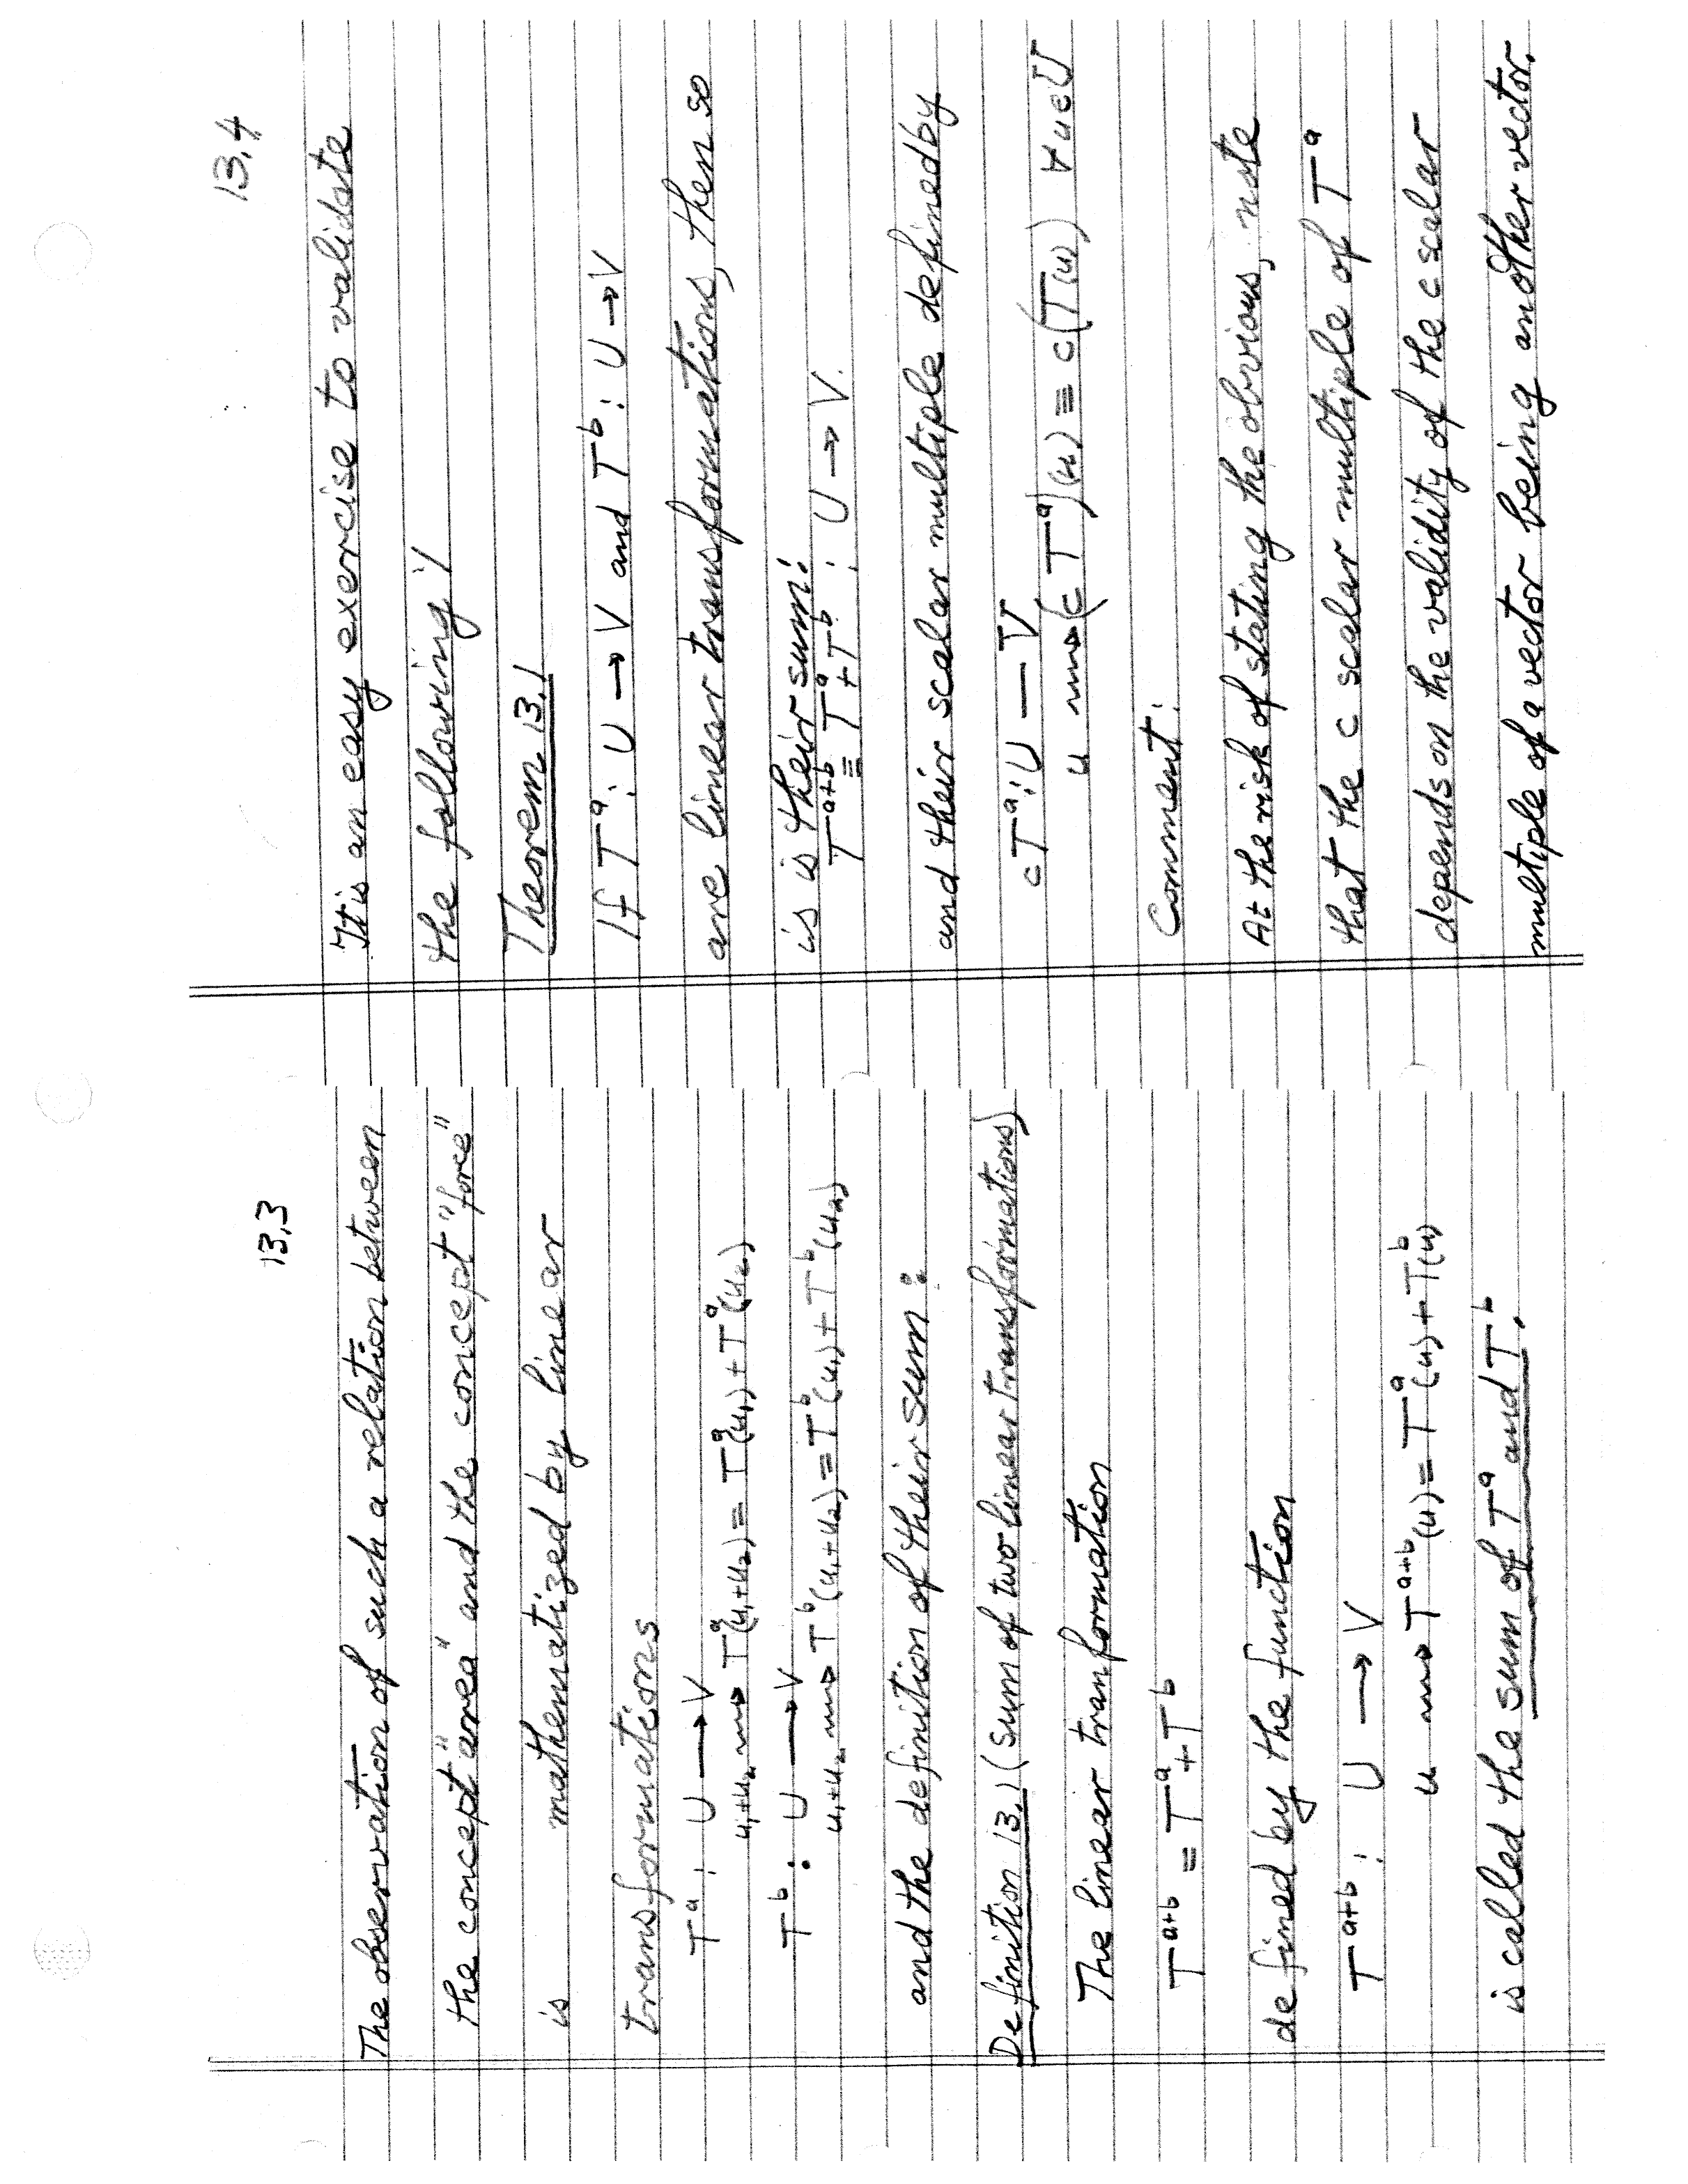 13.3
The observation of such a relation between
the concept "area" and the concept "force"
is mathematized by linear
transformations
T^a : U → V
u₁+u₂ ⇝ T^a(u₁+u₂) = T^a(u₁) + T^a(u₂)
T^b : U → V
u₁+u₂ ⇝ T^b(u₁+u₂) = T^b(u₁) + T^b(u₂)
and the definition of their sum:
Definition 13.1 (sum of two linear transformations)
The linear tranformation
T^{a+b} = T^a + T^b
defined by the function
T^{a+b} : U → V
u ⇝ T^{a+b}(u) = T^a(u) + T^b(u)
is called the sum of T^a and T^b.
13.4
It is an easy exercise to validate
the following:
Theorem 13.1
If T^a : U → V and T^b : U → V
are linear transformations, then so
is is their sum:
T^{a+b} ≡ T^a + T^b : U → V.
and their scalar multiple defined by
cT^a : U — V
u ⇝ (cT^a)(u) ≡ c(T(u)) ∀ u ∈ U
Comment:
At the risk of stating the obvious, note
that the c scalar multiple of T^a
depends on the validity of the c scalar
multiple of a vector being another vector.